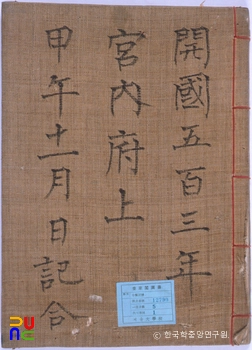 開國五百三年
宮內府上
甲午十一月日記合
© 한국학중앙연구원